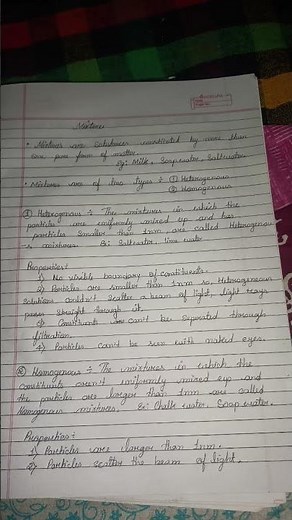 Mixture
• Mixtures are substances constituted by more than
one pure form of matter.
Eg: Milk, Soap water, Saltwater
• Mixtures are of two types ÷ ① Heterogenous
② Homogenous
① Heterogenous ÷ The mixtures in which the
particles are uniformly mixed up and has
particles smaller than 1nm, are called Heterogenous
mixtures. Eg: Saltwater, lime water
Properties:
1) No visible boundary of constituents.
2) Particles are smaller than 1nm so, Heterogeneous
Solutions couldn't scatter a beam of light, light rays
passes straight through it.
3) Constituents can't be seperated through
filtration.
4) Particles can't be seen with naked eyes.
② Homogenous ÷ The mixtures in which the
constituents aren't uniformly mixed up and
the particles are larger than 1nm are called
Homogenous mixtures. Eg: Chalk water. Soap water.
Properties:
1) Particles are larger than 1nm.
2) Particles scatter the beam of light.